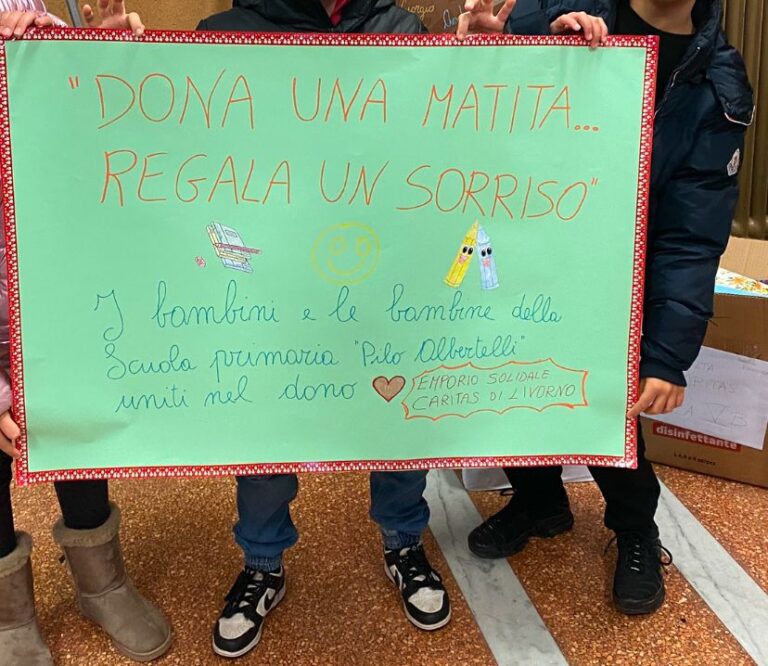 Giorgio
"DONA UNA MATITA...
REGALA UN SORRISO"
I bambini e le bambine della
Scuola primaria "Pilo Albertelli"
uniti nel dono
EMPORIO SOLIDALE
CARITAS DI LIVORNO
VB
disinfettante